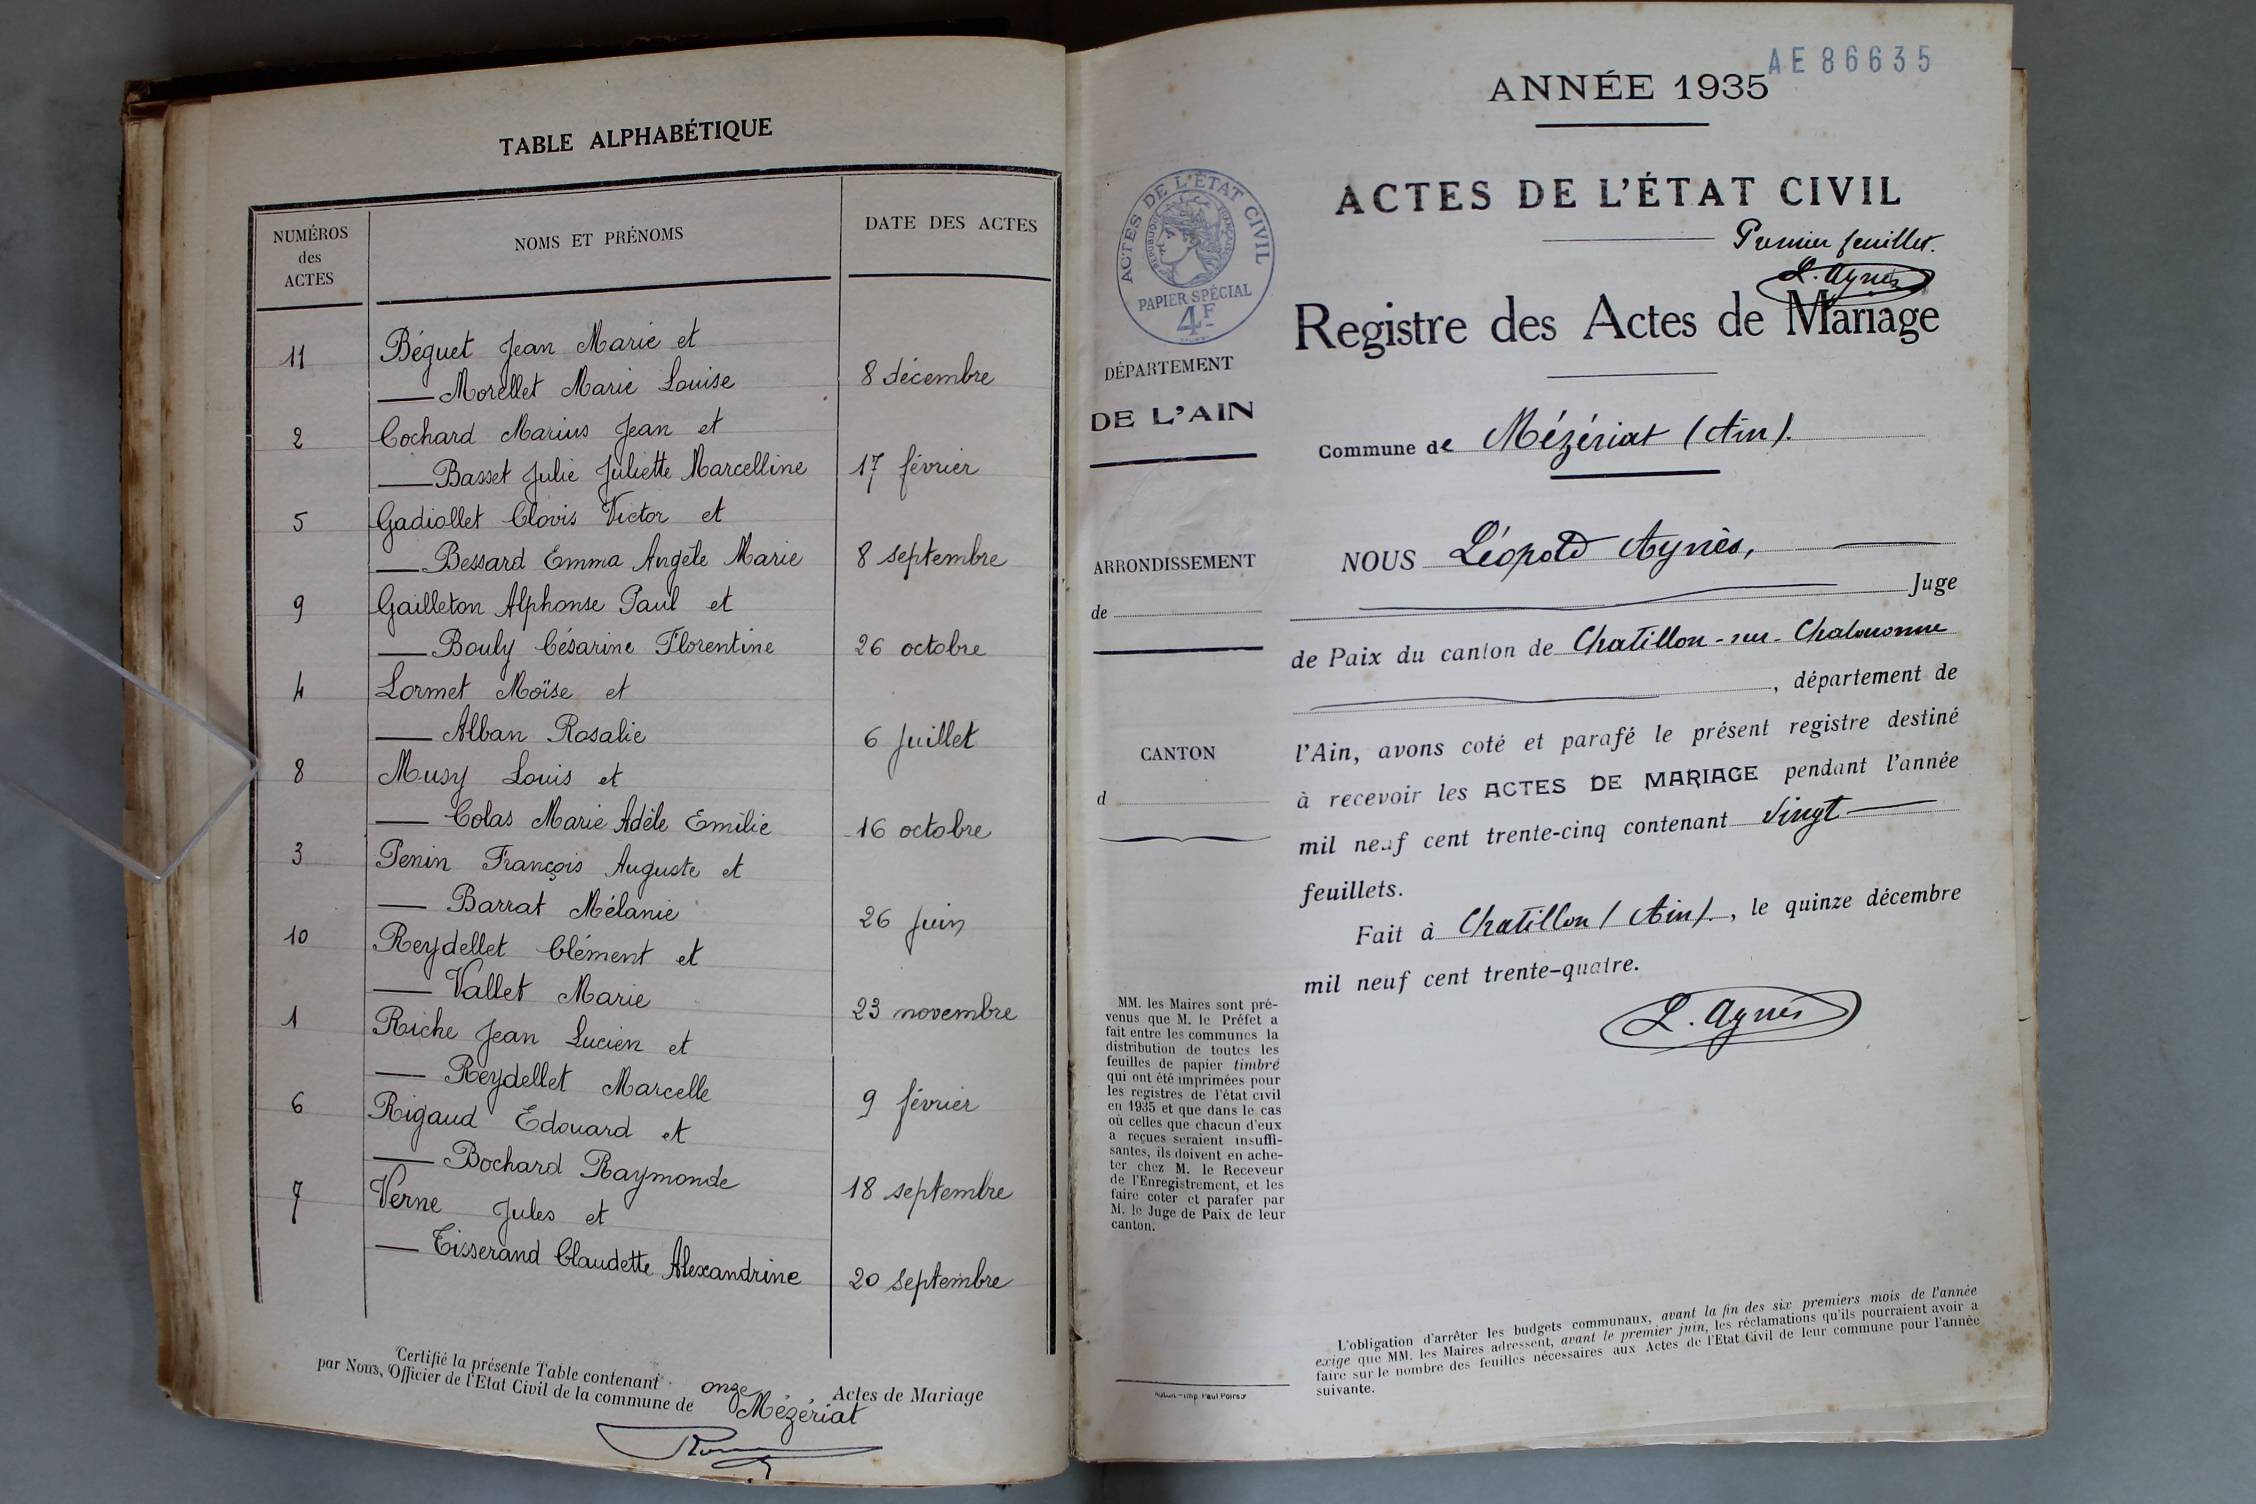 TABLE ALPHABÉTIQUE
NUMÉROS
des
ACTES
NOMS ET PRÉNOMS
DATE DES ACTES
11 Béguet Jean Marie et
Morellet Marie Louise 8 décembre
2 Cochard Marius Jean et
Basset Julie Juliette Marcelline 17 février
5 Gadiollet Clovis Victor et
Bessard Emma Angèle Marie 8 septembre
9 Gailleton Alphonse Paul et
Bouly Césarine Florentine 26 octobre
4 Lormet Moïse et
Alban Rosalie 6 juillet
8 Musy Louis et
Colas Marie Adèle Emilie 16 octobre
3 Penin François Auguste et
Barrat Mélanie 26 juin
10 Reydellet Clément et
Vallet Marie 23 novembre
1 Riche Jean Lucien et
Reydellet Marcelle 9 février
6 Rigaud Edouard et
Bochard Raymonde 18 septembre
7 Verne Jules et
Tisserand Claudette Alexandrine 20 septembre
Certifié la présente Table contenant onze, Actes de Mariage
par Nous, Officier de l'Etat Civil de la commune de Mézériat
AE 86635
ANNÉE 1935
ACTES DE L'ÉTAT CIVIL
Premier feuillet.
L. Aynès
Registre des Actes de Mariage
ACTES DE L'ÉTAT CIVIL
RÉPUBLIQUE FRANÇAISE
PAPIER SPÉCIAL
4F
DÉPARTEMENT
DE L'AIN
ARRONDISSEMENT
de
CANTON
d
MM. les Maires sont pré-
venus que M. le Préfet a
fait entre les communes la
distribution de toutes les
feuilles de papier timbré
qui ont été imprimées pour
les registres de l'état civil
en 1935 et que dans le cas
où celles que chacun d'eux
a reçues seraient insuffi-
santes, ils doivent en ache-
ter chez M. le Receveur
de l'Enregistrement, et les
faire coter et parafer par
M. le Juge de Paix de leur
canton.
Commune de Mézériat (Ain).
NOUS Léopold Aynès,
Juge
de Paix du canton de Chatillon-sur-Chalaronne
, département de
l'Ain, avons coté et parafé le présent registre destiné
à recevoir les ACTES DE MARIAGE pendant l'année
mil neuf cent trente-cinq contenant vingt
feuillets.
Fait à Chatillon (Ain)., le quinze décembre
mil neuf cent trente-quatre.
L. Aynès
L'obligation d'arrêter les budgets communaux, avant la fin des six premiers mois de l'année
exige que MM. les Maires adressent, avant le premier juin, les réclamations qu'ils pourraient avoir a
faire sur le nombre des feuilles nécessaires aux Actes de l'Etat Civil de leur commune pour l'année
suivante.